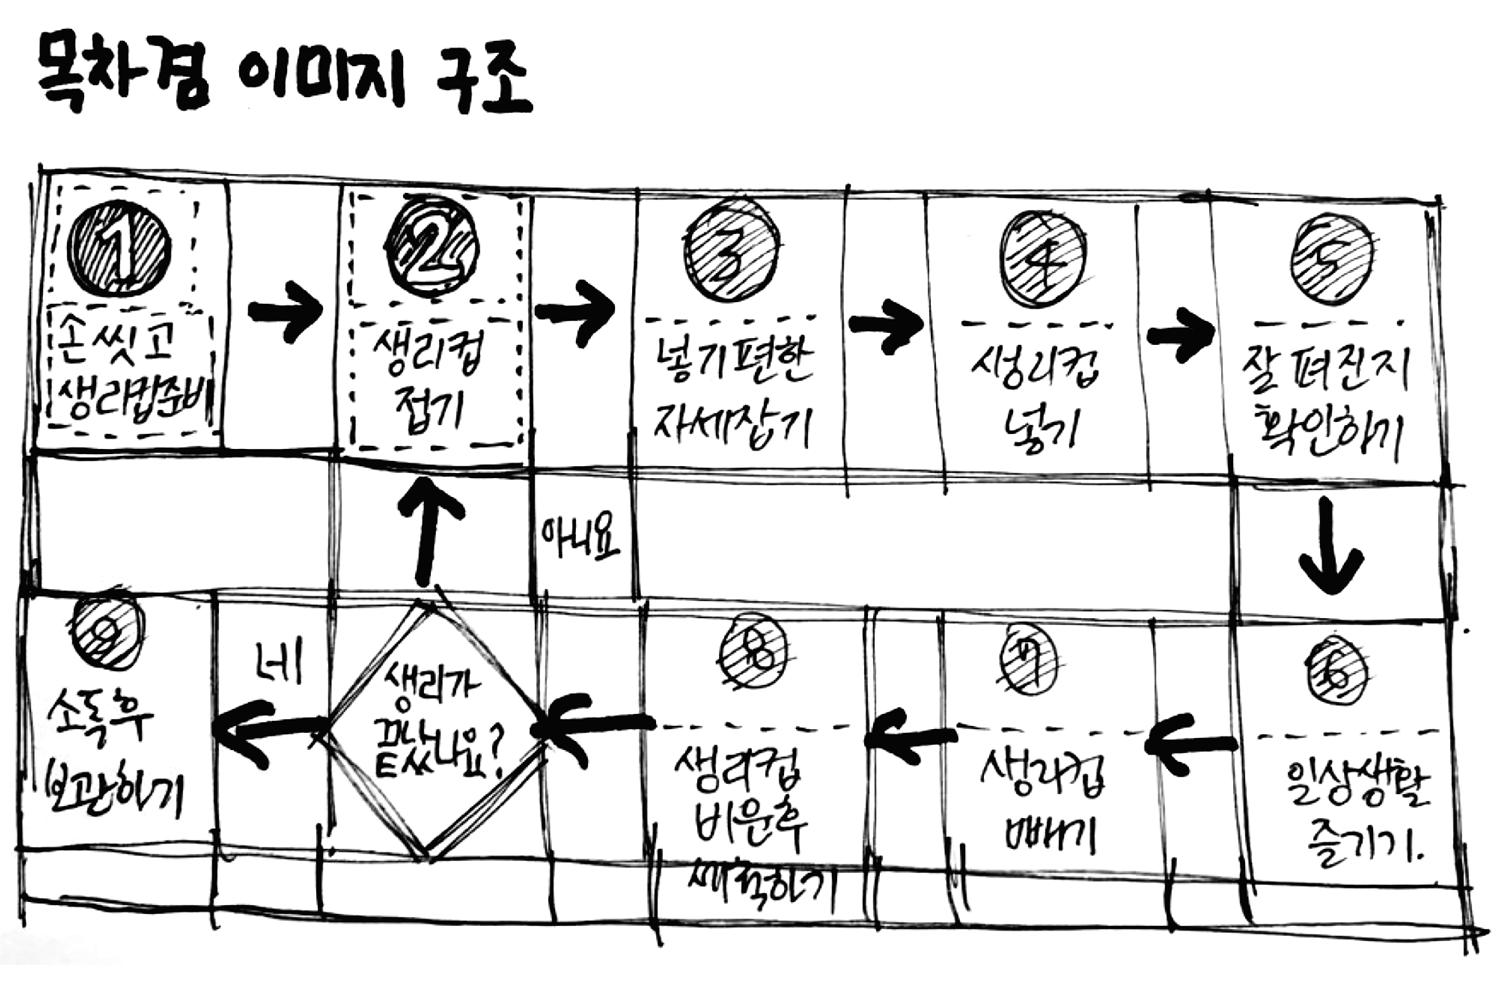 목차겸 이미지 구조
1
손 씻고
생리컵준비
2
생리컵
접기
3
넣기편한
자세잡기
4
생리컵
넣기
5
잘 펴진지
확인하기
아니요
6
일상생활
즐기기.
7
생리컵
빼기
8
생리컵
비운후
세척하기
생리가
끝났나요?
네
9
소독후
보관하기